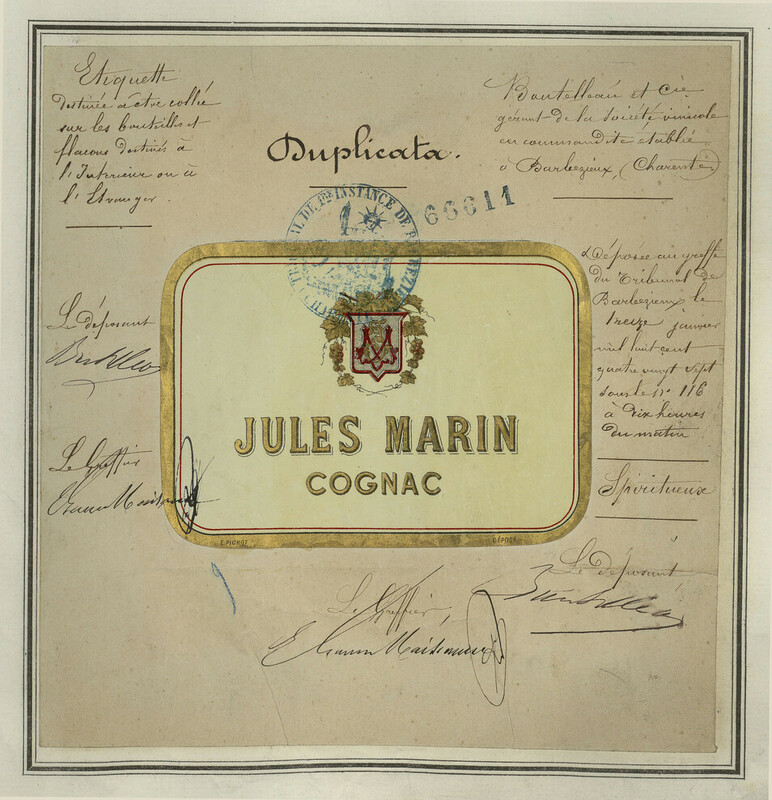 Etiquette
destinée à être collée
sur les bouteilles et
flacons destinés à
l'Intérieur ou à
l'Etranger.
Duplicata.
Boutelleau et Cie
gérant de la société vinicole
en commandite établie
à Barbezieux, (Charente)
66611
TRIBUNAL DE PRE INSTANCE DE BARBEZIEUX
Déposée au greffe
du Tribunal de
Barbezieux le
treize janvier
mil huit cent
quatre vingt sept
sous le no 116
à dix heures
du matin
Spiritueux
Le déposant
Boutelleau
Le Greffier
JULES MARIN
COGNAC
E. PICHOT
DÉPOSÉ
Le déposant,
Boutelleau
Le Greffier,